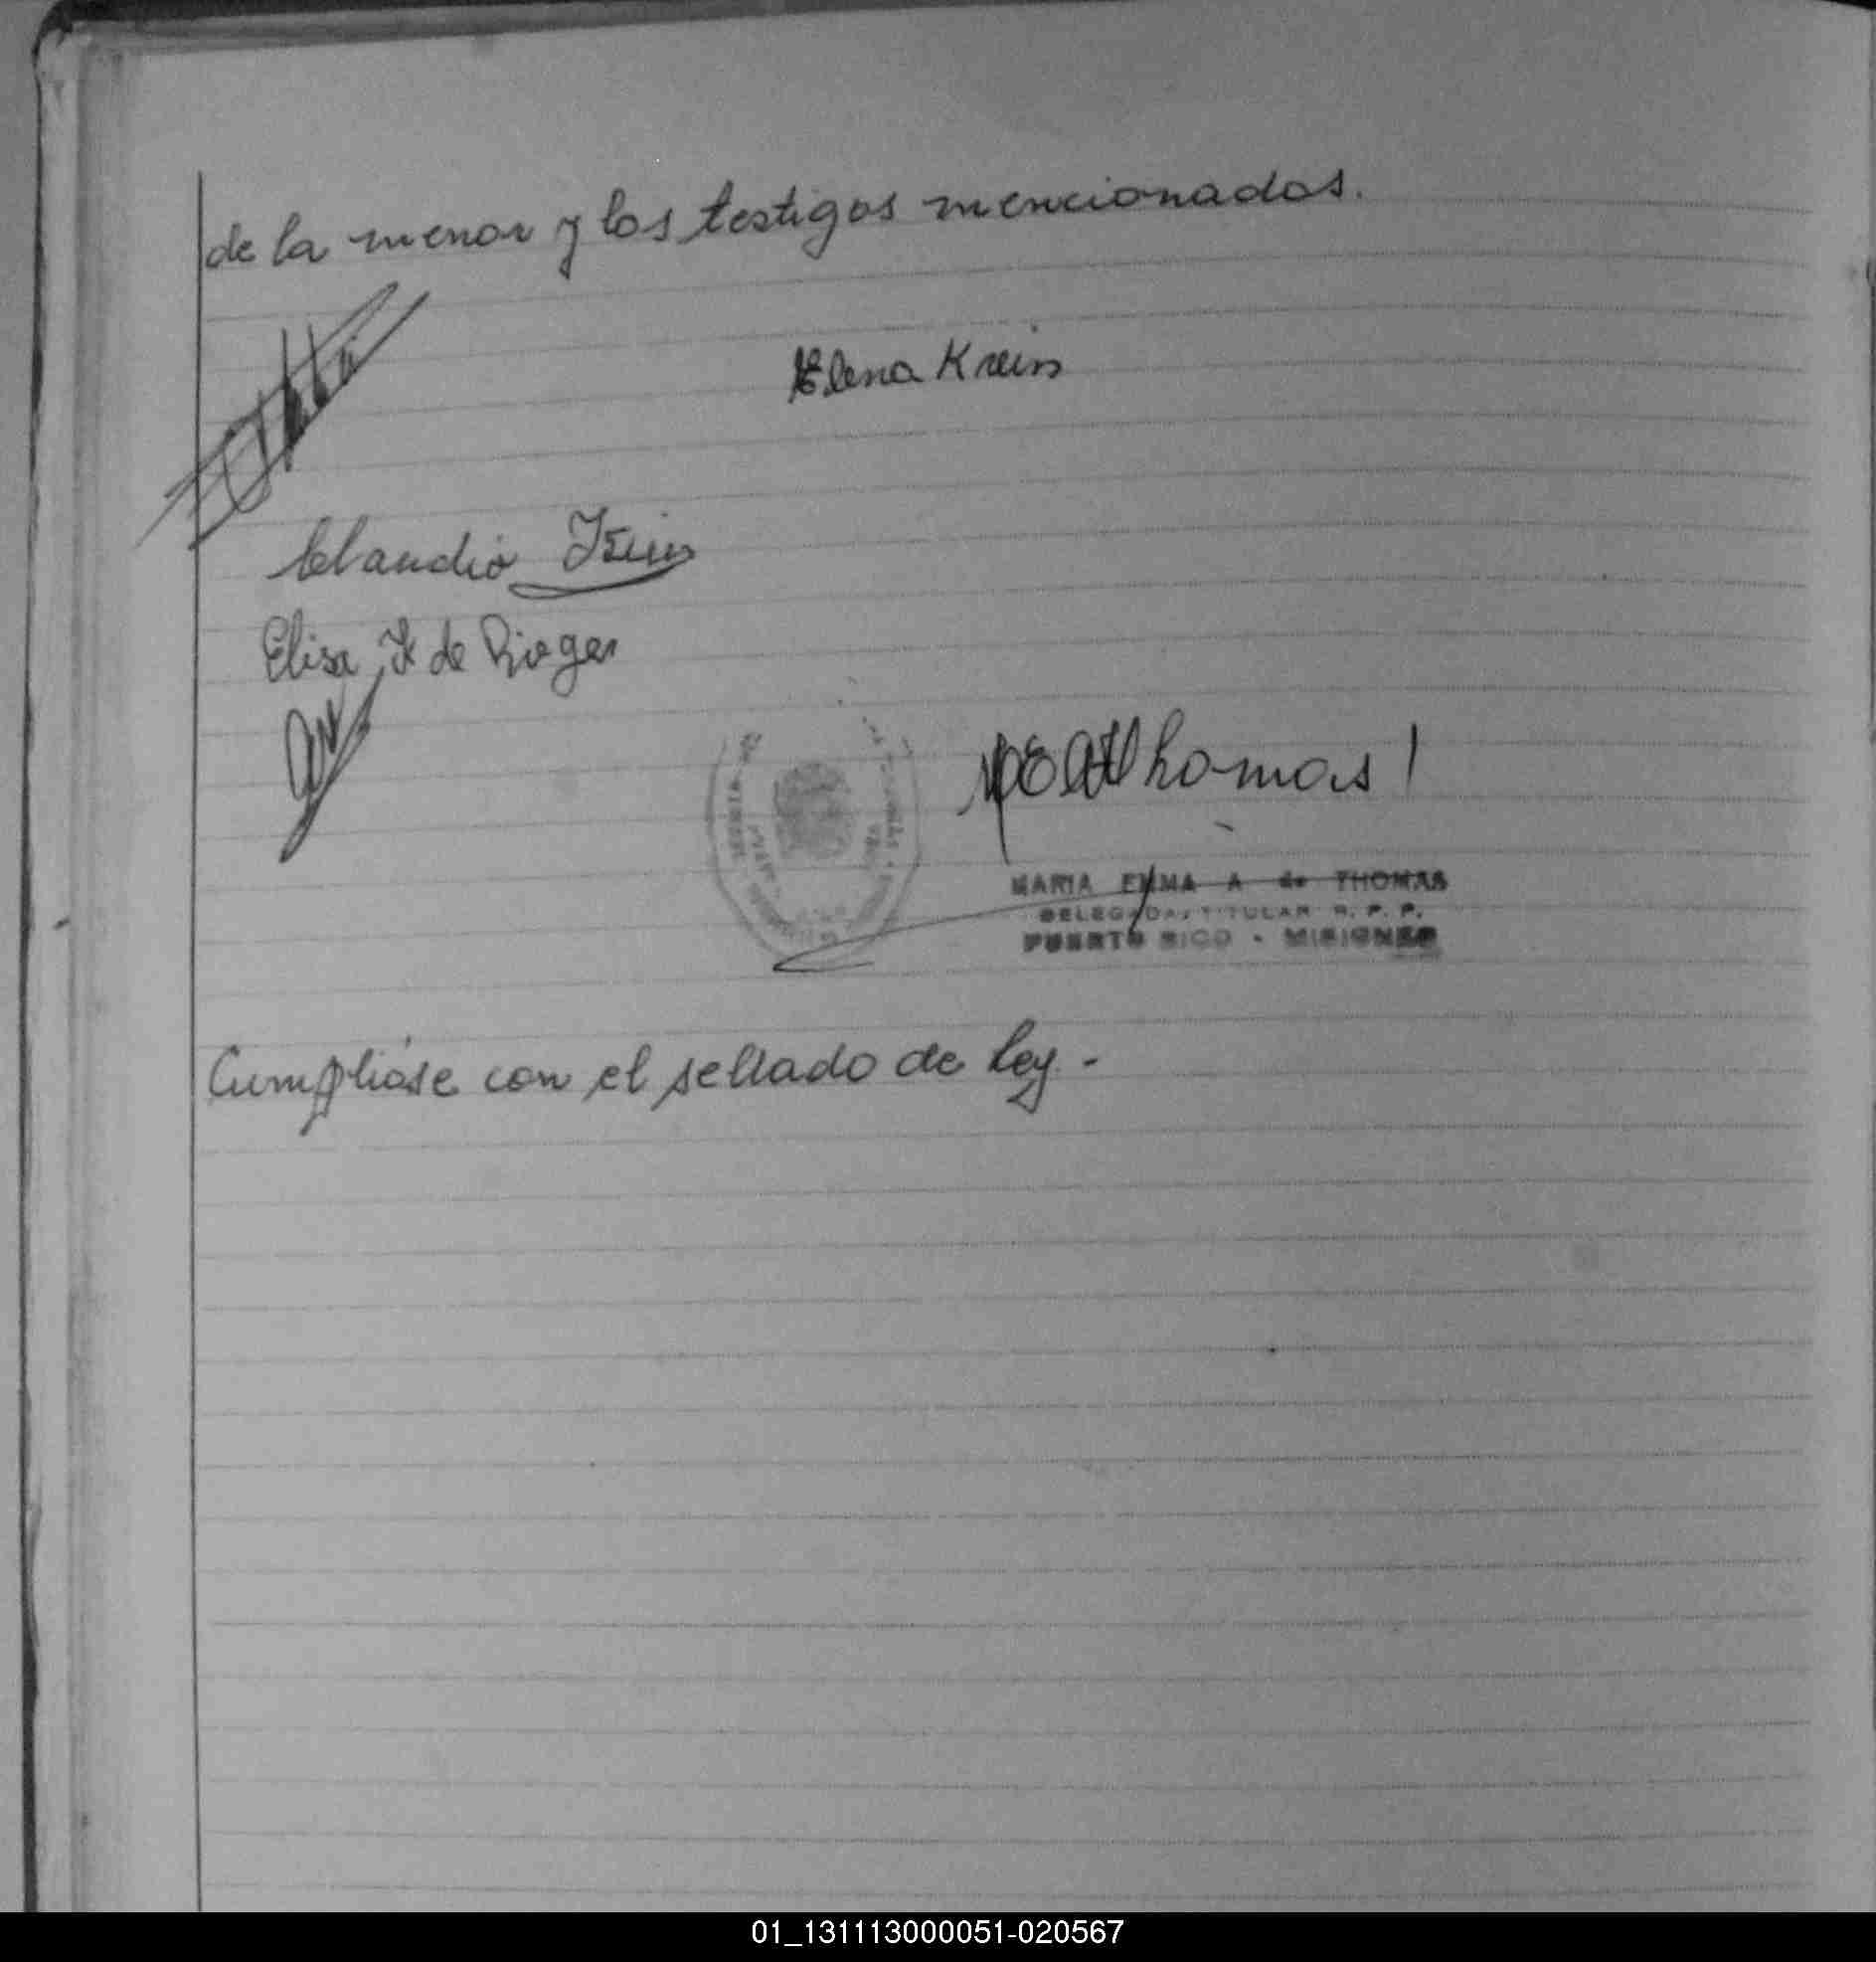 de la menor y los testigos mencionados.
Elena Krein
Claudio
Elisa K de Rieger
MEAThomas
MARIA EMMA A de THOMAS
DELEGADA TITULAR R. P. P.
PUERTO RICO - MISIONES
Cumpliáse con el sellado de ley.-
01_131113000051-020567